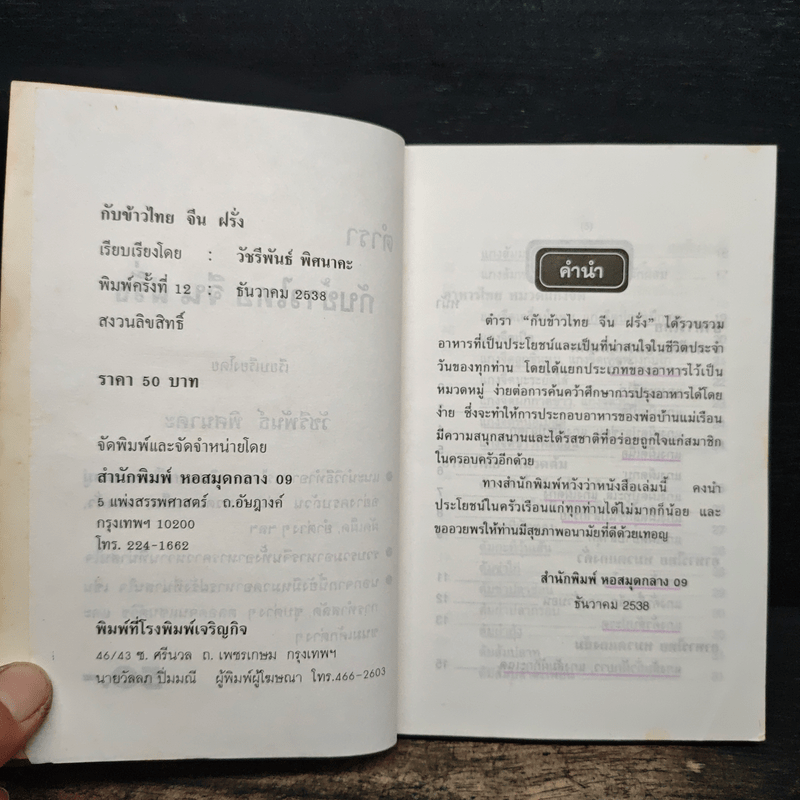 กับข้าวไทย จีน ฝรั่ง
เรียบเรียงโดย : วัชรีพันธ์ พิศนาคะ
พิมพ์ครั้งที่ 12 : ธันวาคม 2538
สงวนลิขสิทธิ์
ราคา 50 บาท
จัดพิมพ์และจัดจำหน่ายโดย
สำนักพิมพ์ หอสมุดกลาง 09
5 แพ่งสรรพศาสตร์ ถ.อัษฎางค์
กรุงเทพฯ 10200
โทร. 224-1662
พิมพ์ที่โรงพิมพ์เจริญกิจ
46/43 ซ. ศรีนวล ถ. เพชรเกษม กรุงเทพฯ
นายวัลลภ ปิ่มมณี ผู้พิมพ์ผู้โฆษณา โทร.466-2603
คำนำ
ตำรา “กับข้าวไทย จีน ฝรั่ง” ได้รวบรวม
อาหารที่เป็นประโยชน์และเป็นที่น่าสนใจในชีวิตประจำ
วันของทุกท่าน โดยได้แยกประเภทของอาหารไว้เป็น
หมวดหมู่ ง่ายต่อการค้นคว้าศึกษาการปรุงอาหารได้โดย
ง่าย ซึ่งจะทำให้การประกอบอาหารของพ่อบ้านแม่เรือน
มีความสนุกสนานและได้รสชาติที่อร่อยถูกใจแก่สมาชิก
ในครอบครัวอีกด้วย
ทางสำนักพิมพ์หวังว่าหนังสือเล่มนี้ คงนำ
ประโยชน์ในครัวเรือนแก่ทุกท่านได้ไม่มากก็น้อย และ
ขออวยพรให้ท่านมีสุขภาพอนามัยที่ดีด้วยเทอญ
สำนักพิมพ์ หอสมุดกลาง 09
ธันวาคม 2538